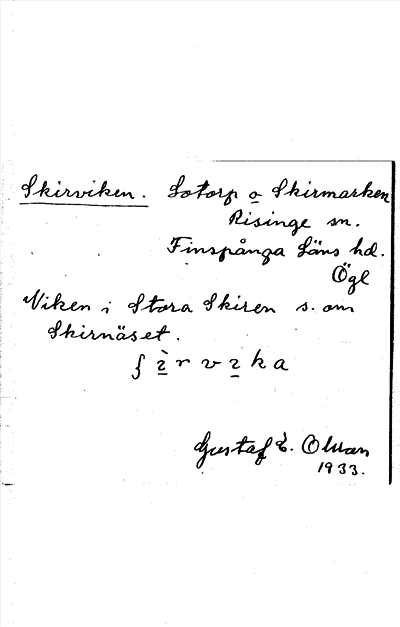 Skirviken. Sotorp o Skirmarken
Risinge sn.
Finspånga Läns hd.
Ögl
Viken i Stora Skiren s. om
Skirnäset.
ʃ ì r v ı k a
Gustaf E. Olsson
1933.